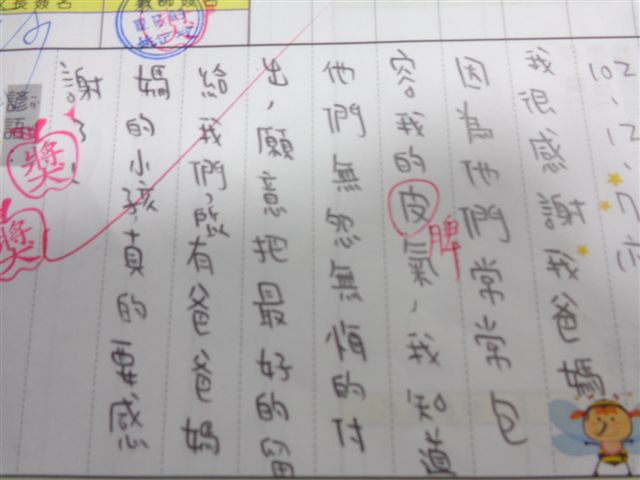 長簽名
教師簽名
102、12、7六
我很感謝我爸媽
因為他們常常包
容我的皮氣，我知道
脾
他們無怨無悔的付
出，願意把最好的留
給我們，所有爸爸媽
媽的小孩真的要感
謝。
諺語
獎
獎